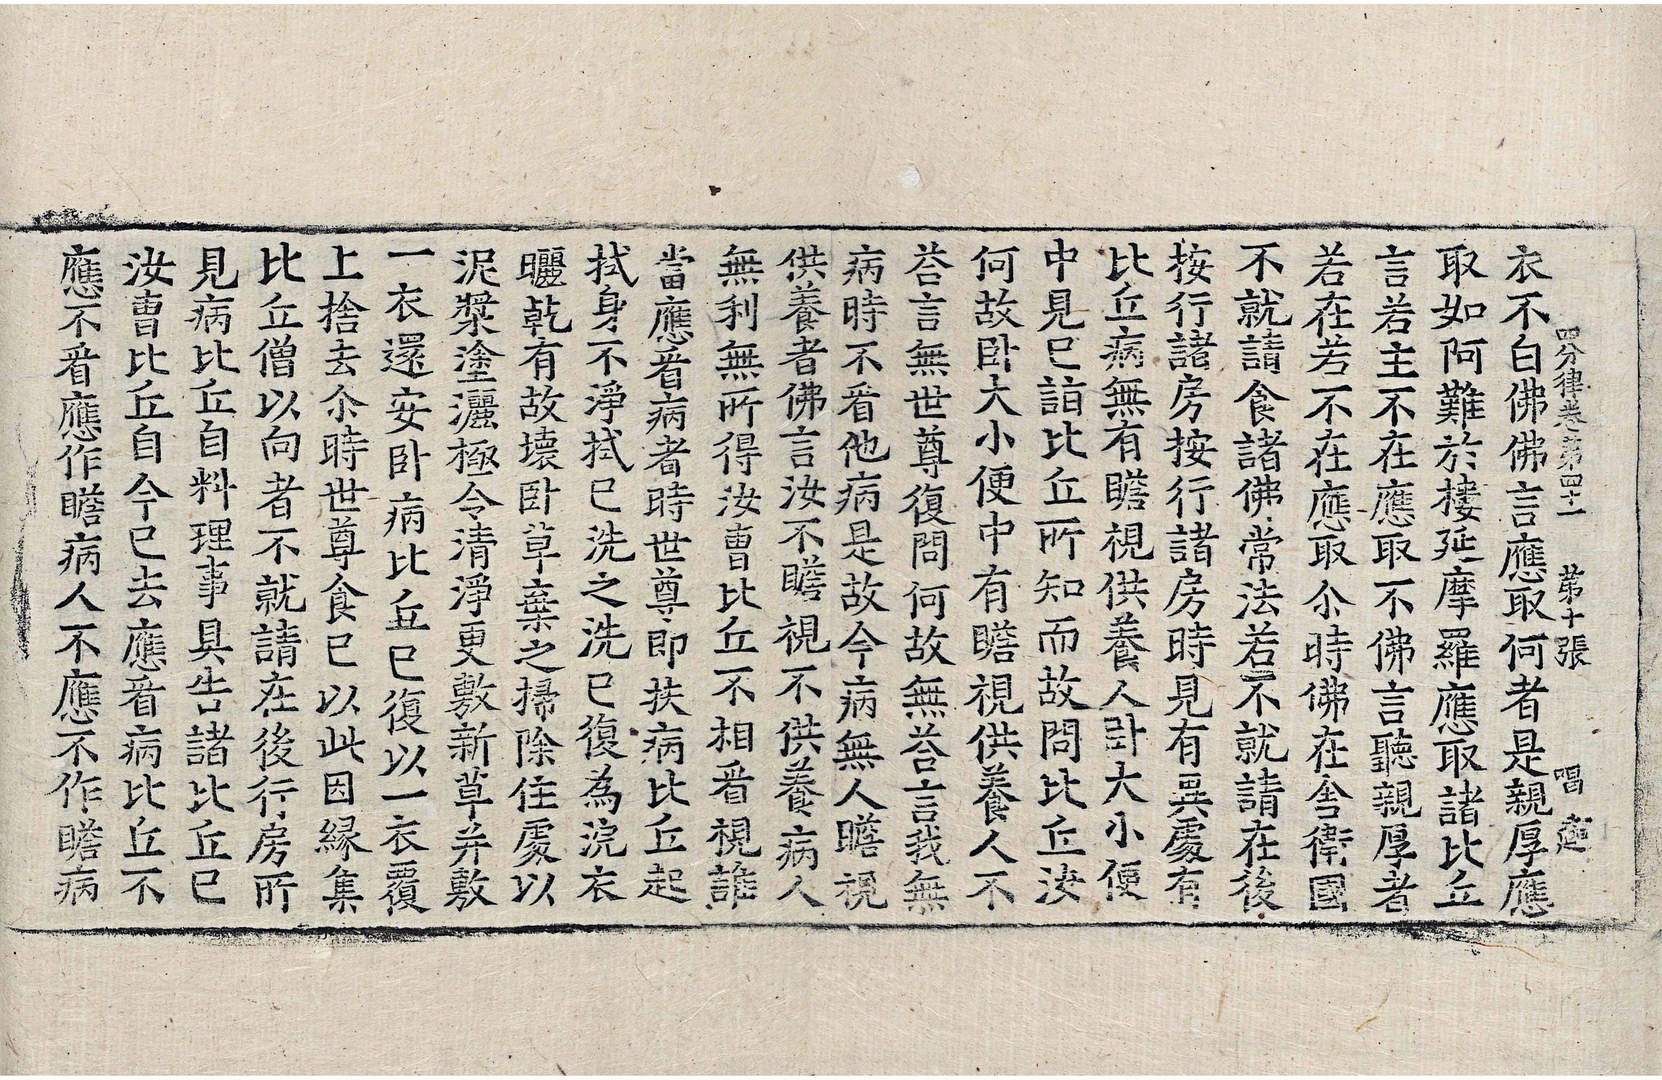 四分律卷第四十一　第十張　唱
衣不白佛佛言應取何者是親厚應
取如阿難於樓延摩羅應取諸比丘
言若主不在應取不佛言聽親厚者
若在若不在應取尒時佛在舍衛國
不就請食諸佛常法若不就請在後
按行諸房按行諸房時見有異處有
比丘病無有瞻視供養人臥大小便
中見已詣比丘所知而故問比丘汝
何故臥大小便中有瞻視供養人不
荅言無世尊復問何故無荅言我無
病時不看他病是故今病無人瞻視
供養者佛言汝不瞻視不供養病人
無利無所得汝曹比丘不相看視誰
當應看病者時世尊即扶病比丘起
拭身不淨拭已洗之洗已復為浣衣
曬乾有故壞臥草棄之掃除住處以
泥漿塗灑極令清淨更敷新草并敷
一衣還安臥病比丘已復以一衣覆
上捨去尒時世尊食已以此因緣集
比丘僧以向者不就請在後行房所
見病比丘自料理事具告諸比丘已
汝曹比丘自今已去應看病比丘不
應不看應作瞻病人不應不作瞻病